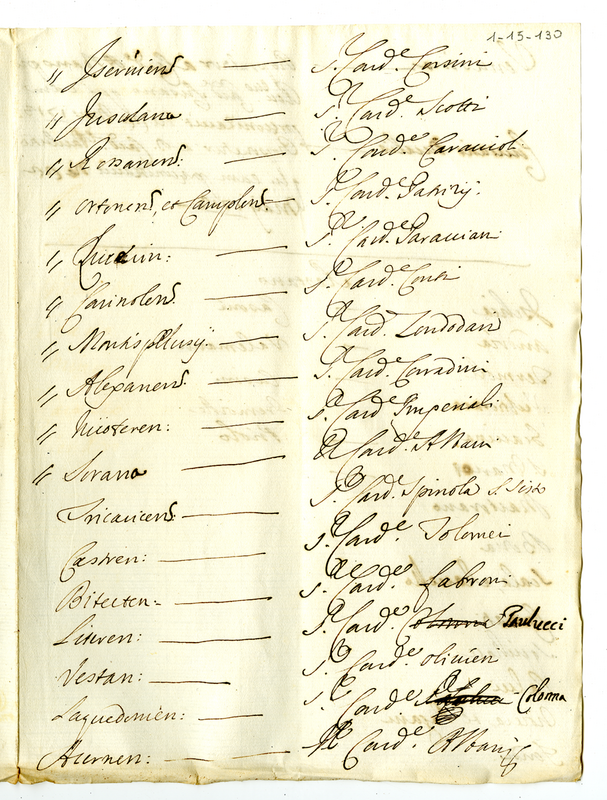 1-15-130
" Iserniens — S. Card.e Corsini
" Tusculana — S. Card.e Scotti
" Rossanens: — S. Card.e Caraccioli
" Ortonens, et Camplens — S. Card.e Patrizj.
" — S. Card.e Paracciani
" Carinolens — S. Card.e Conti
" Montis Pelusij — S. Card.e Zondodari
" Alexanens — S. Card.e Corradini
" Nicoteren: — S. Card.e Imperiali
" Sorana — Card.e Albani
Tricaricens: — S. Card.e Spinola S. Sisto
Castren: — S. Card.e Tolomei
Bitecten- — S. Card.e Fabroni
Literen: — S. Card.e Paulucci
Vestan: — S. Card.e Olivieri
Laquedonien: — S. Card.e Coloma
Acernen: — Card.e Albani